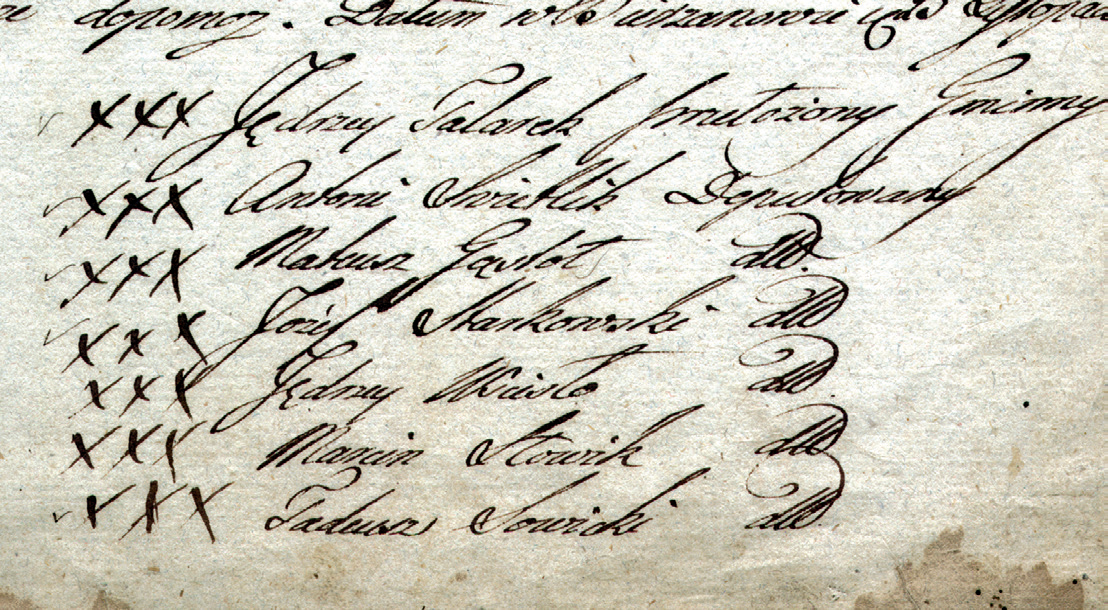 dopomoż. Datum w Wierzanowie Listopad
xxx Jędrzey Talarek przełożony Gminny
xxx Antoni Świetlik Deputowany
xxx Mateusz dtto
xxx Józef Skarkowski dtto
xxx Jędrzey Wcisło dtto
xxx Marcin Słowik dtto
xxx Tadeusz Sowicki dtto